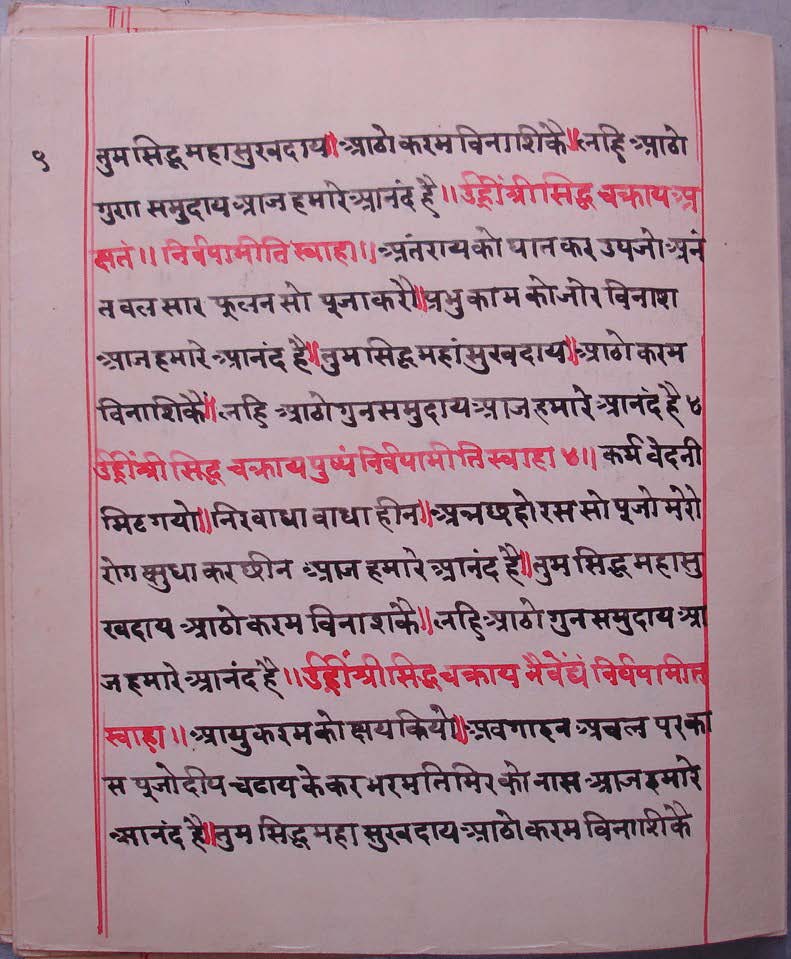 ९ तुम सिद्ध महासुखदाय॥ आठो करम विनाशिकै॥ लहि आठो
गुण समुदाय आज हमारे आनंद है॥ उंह्रींश्री सिद्ध चक्राय अ
क्षतं॥ निर्वपामीति स्वाहा॥ अंतराय को घात कर उपजो अनं
त वल सार फूलन सो पूजा करौ॥ प्रभु काम को जोर विनाश
आज हमारे आनंद है॥ तुम सिद्ध महांसुखदाय॥ आठो करम
विनाशिकैं॥ लहि आठो गुन समुदाय आज हमारे आनंद है ४
उंह्रींश्री सिद्ध चक्राय पुष्पं निर्वपामीति स्वाहा ४॥ कर्म वेदनी
मिट गयो॥ निरवाधा वाधा हीन॥ अन्न छहो रस सो पूजो मेरो
रोग क्षुधा कर छीन आज हमारे आनंद है॥ तुम सिद्ध महासु
खदाय आठो करम विनाशकै॥ लहि आठो गुन समुदाय आ
ज हमारे आनंद है॥ उंह्रींश्री सिद्ध चक्राय नैवेद्यं निर्वपामीत
स्वाहा॥ आयु करम को क्षय कियो॥ अवगाहन अचल परका
स पूजो दीप चढाय के कर भरम तिमिर को नास आज हमारे
आनंद है॥ तुम सिद्ध महा सुखदाय आठो करम विनाशिकै